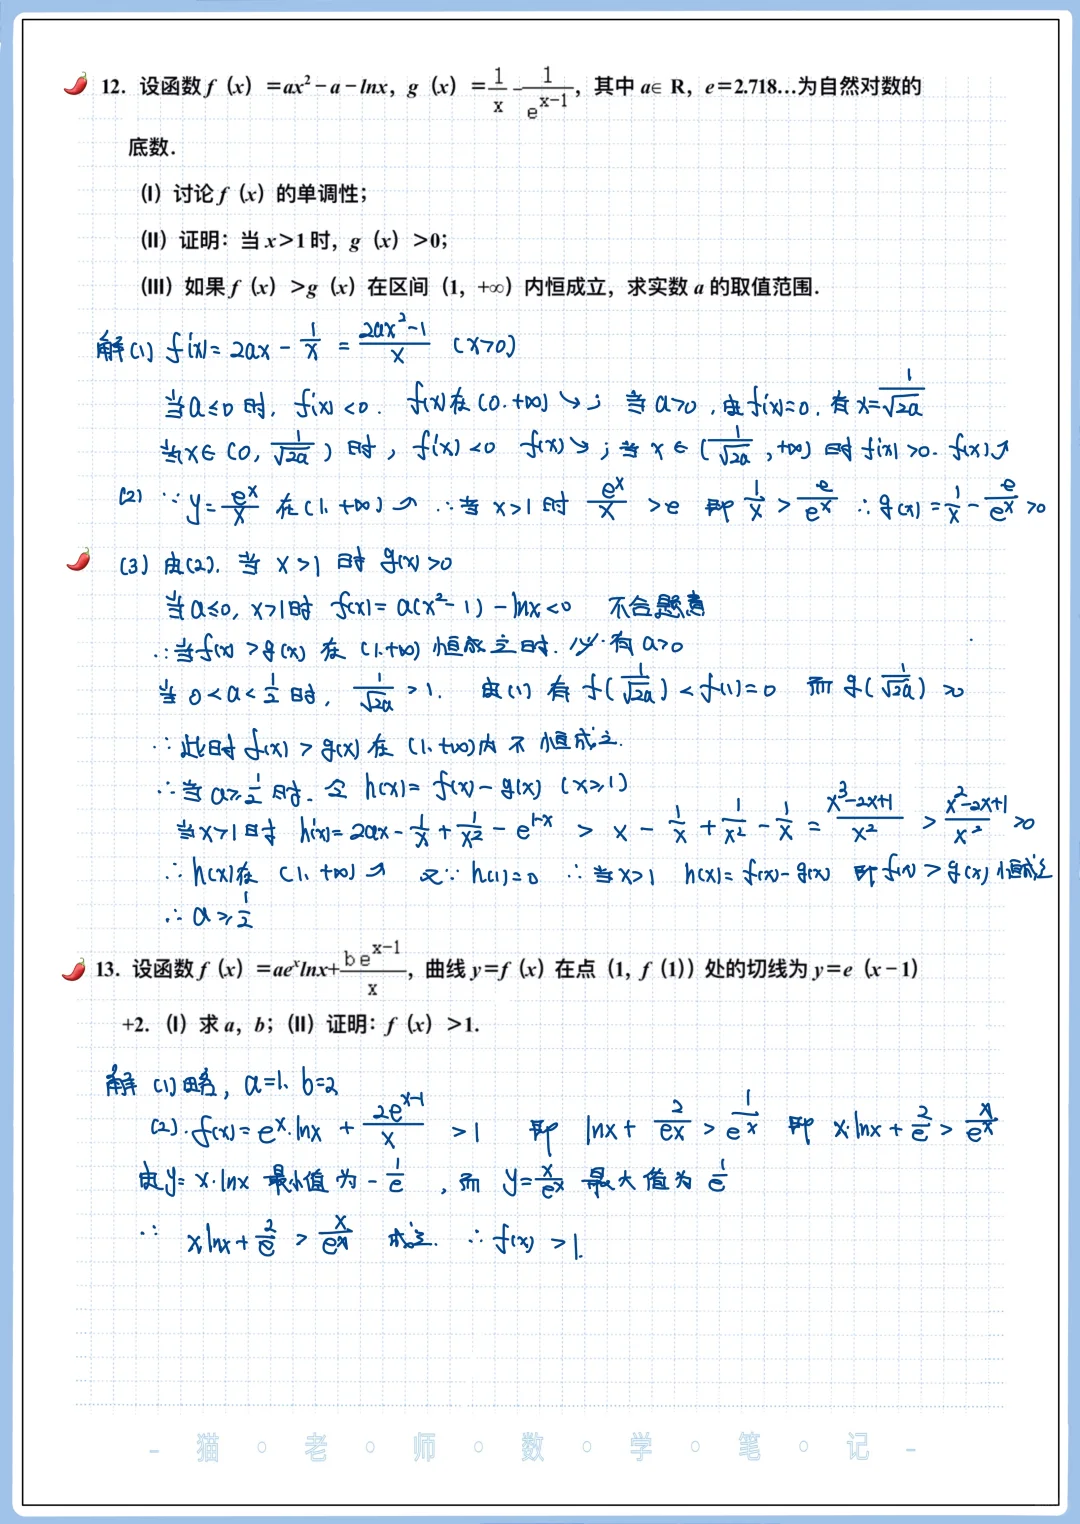 12. 设函数 f (x) =ax²－a－lnx, g (x) =1/x－1/e^(x-1), 其中 a∈ R, e=2.718…为自然对数的
底数.
(Ⅰ) 讨论 f (x) 的单调性;
(Ⅱ) 证明: 当 x>1 时, g (x) >0;
(Ⅲ) 如果 f (x) >g (x) 在区间 (1, +∞) 内恒成立, 求实数 a 的取值范围.
解(1) f'(x)= 2ax - 1/x = (2ax²-1)/x (x>0)
当a≤0时, f'(x)<0. f(x)在(0.+∞)↘; 当a>0,由f'(x)=0.有x=1/√2a
当x∈(0, 1/√2a)时, f'(x)<0 f(x)↘; 当x∈(1/√2a, +∞)时f'(x)>0. f(x)↗
(2) ∵y=e^x/x 在(1.+∞)↗ ∴当x>1时 e^x/x >e 即 1/x > e/e^x ∴g(x)=1/x - e/e^x >0
(3) 由(2). 当x>1时g(x)>0
当a≤0, x>1时 f(x)=a(x²-1)-lnx<0 不合题意
∴当f(x)>g(x)在(1.+∞)恒成立时.必有a>0
当0<a<1/2时, 1/√2a >1. 由(1)有f(1/√2a)<f(1)=0 而g(1/√2a)>0
∴此时f(x)>g(x)在(1.+∞)内不恒成立.
∴当a≥1/2时.令h(x)=f(x)-g(x) (x≥1)
当x>1时 h'(x)=2ax-1/x+1/x²-e^(1-x) > x-1/x+1/x²-1/x=(x³-2x+1)/x² >(x²-2x+1)/x² >0
∴h(x)在(1.+∞)↗ 又∵h(1)=0 ∴当x>1 h(x)=f(x)-g(x) 即f(x)>g(x)恒成立
∴a≥1/2
13. 设函数 f (x) =ae^xlnx+be^(x-1)/x, 曲线 y=f (x) 在点 (1, f (1)) 处的切线为 y=e (x－1)
+2. (Ⅰ) 求 a, b; (Ⅱ) 证明: f (x) >1.
解(1)略, a=1. b=2
(2). f(x)=e^x·lnx+2e^(x-1)/x >1 即 lnx+2/ex>1/e^x 即 x·lnx+2/e>x/e^x
由y=x·lnx最小值为-1/e, 而y=x/e^x最大值为1/e
∴ xlnx+2/e>x/e^x 成立. ∴f(x)>1.
- 猫 · 老 · 师 · 数 · 学 · 笔 · 记 -